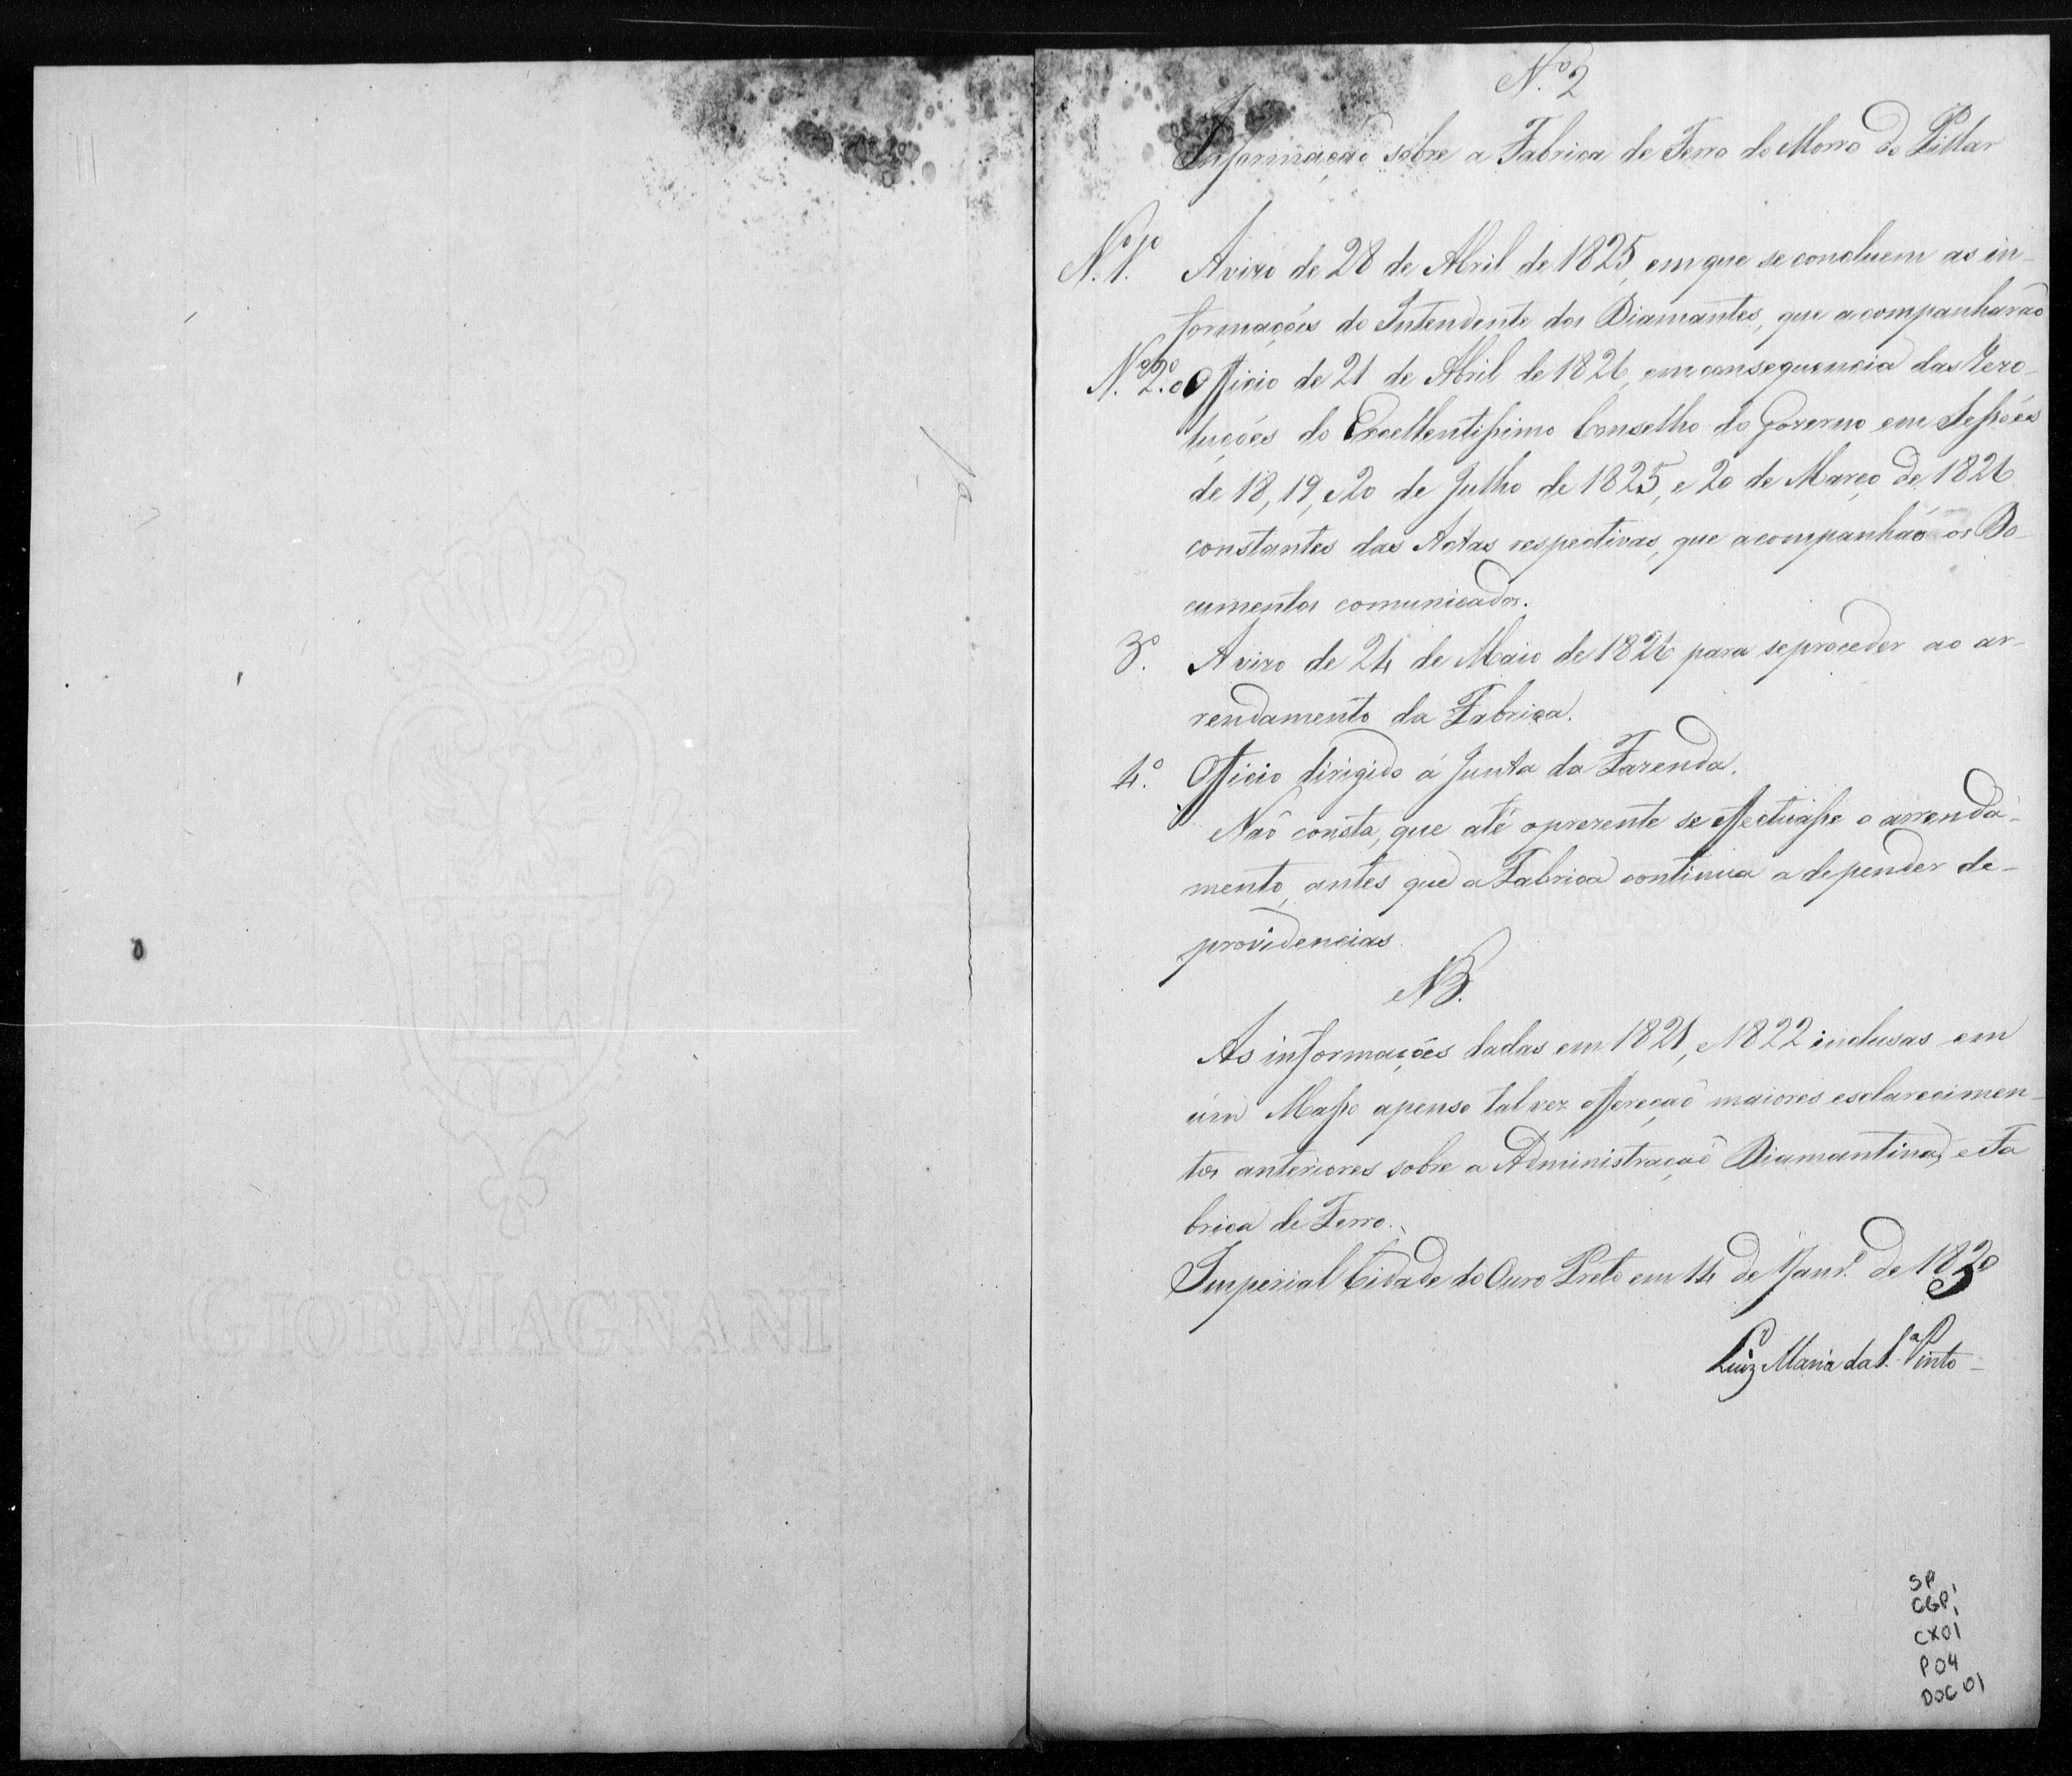 N.º 2
Informação sobre a Fabrica de Ferro do Morro do Pillar
N.º 1.º Avizo de 28 de Abril de 1825, em que se concluem as in-
formações do Intendente dos Diamantes, que acompanharão
N.º 2.º o Officio de 21 de Abril de 1826, em consequencia das Rezo-
luções do Excellentissimo Conselho do Governo em Sessões
de 18, 19, e 20 de Julho de 1825, e 20 de Março de 1826
constantes das Actas respectivas, que acompanhão os Do-
cumentos comunicados.
3.º Avizo de 24 de Maio de 1826 para se proceder ao ar-
rendamento da Fabrica.
4.º Officio dirigido á Junta da Fazenda.
Não consta, que até o prezente se effectuasse o arrenda-
mento, antes que a Fabrica continua a depender de-
providencias.
NB.
As informações dadas em 1821, e 1822 inclusas em
um Masso apenso talvez offereção maiores esclarecimen-
tos anteriores sobre a Administração Diamantina, e Fa
brica de Ferro.
Imperial Cidade do Ouro Preto em 14 de Janr.º de 1830
Luiz Maria da S.ª Pinto-
GIOR MAGNANI
SP
CGP1
CX01
P04
DOC 01